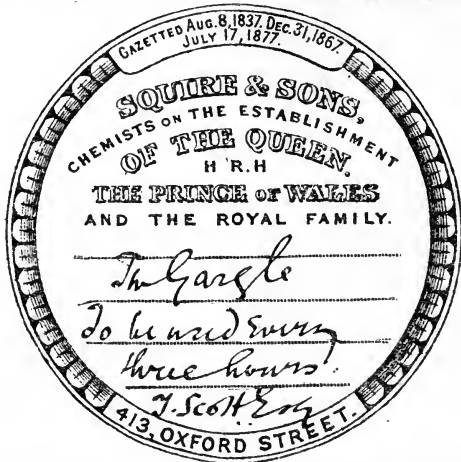 GAZETTED AUG. 8, 1837. DEC. 31, 1867.
JULY 17, 1877.
SQUIRE & SONS,
CHEMISTS ON THE ESTABLISHMENT
OF THE QUEEN.
H.R.H
THE PRINCE OF WALES
AND THE ROYAL FAMILY.
The Gargle
To be used every
three hours.
T. Scott Esq
413, OXFORD STREET.